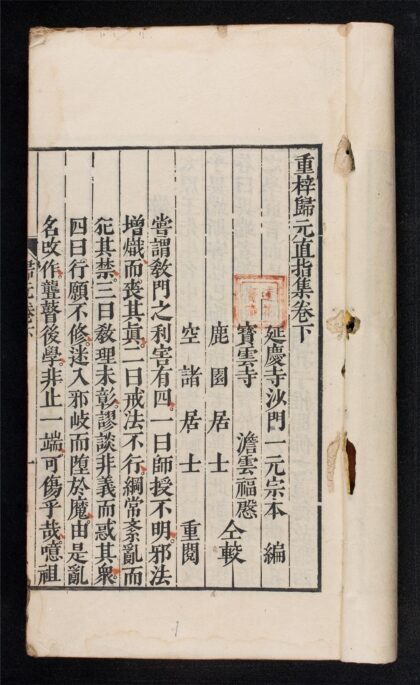 重梓歸元直指集卷下
延慶寺沙門一元宗本 編
寶雲寺 澹雲福慇
鹿園居士 仝較
空諸居士 重閱
嘗謂教門之利害有四一曰師授不明邪法
增熾而喪其眞二曰戒法不行綱常紊亂而
犯其禁三曰教理未彰謬談非義而惑其衆
四曰行願不修迷入邪岐而墮於魔由是亂
名改作聾瞽後學非止一端可傷乎哉噫祖